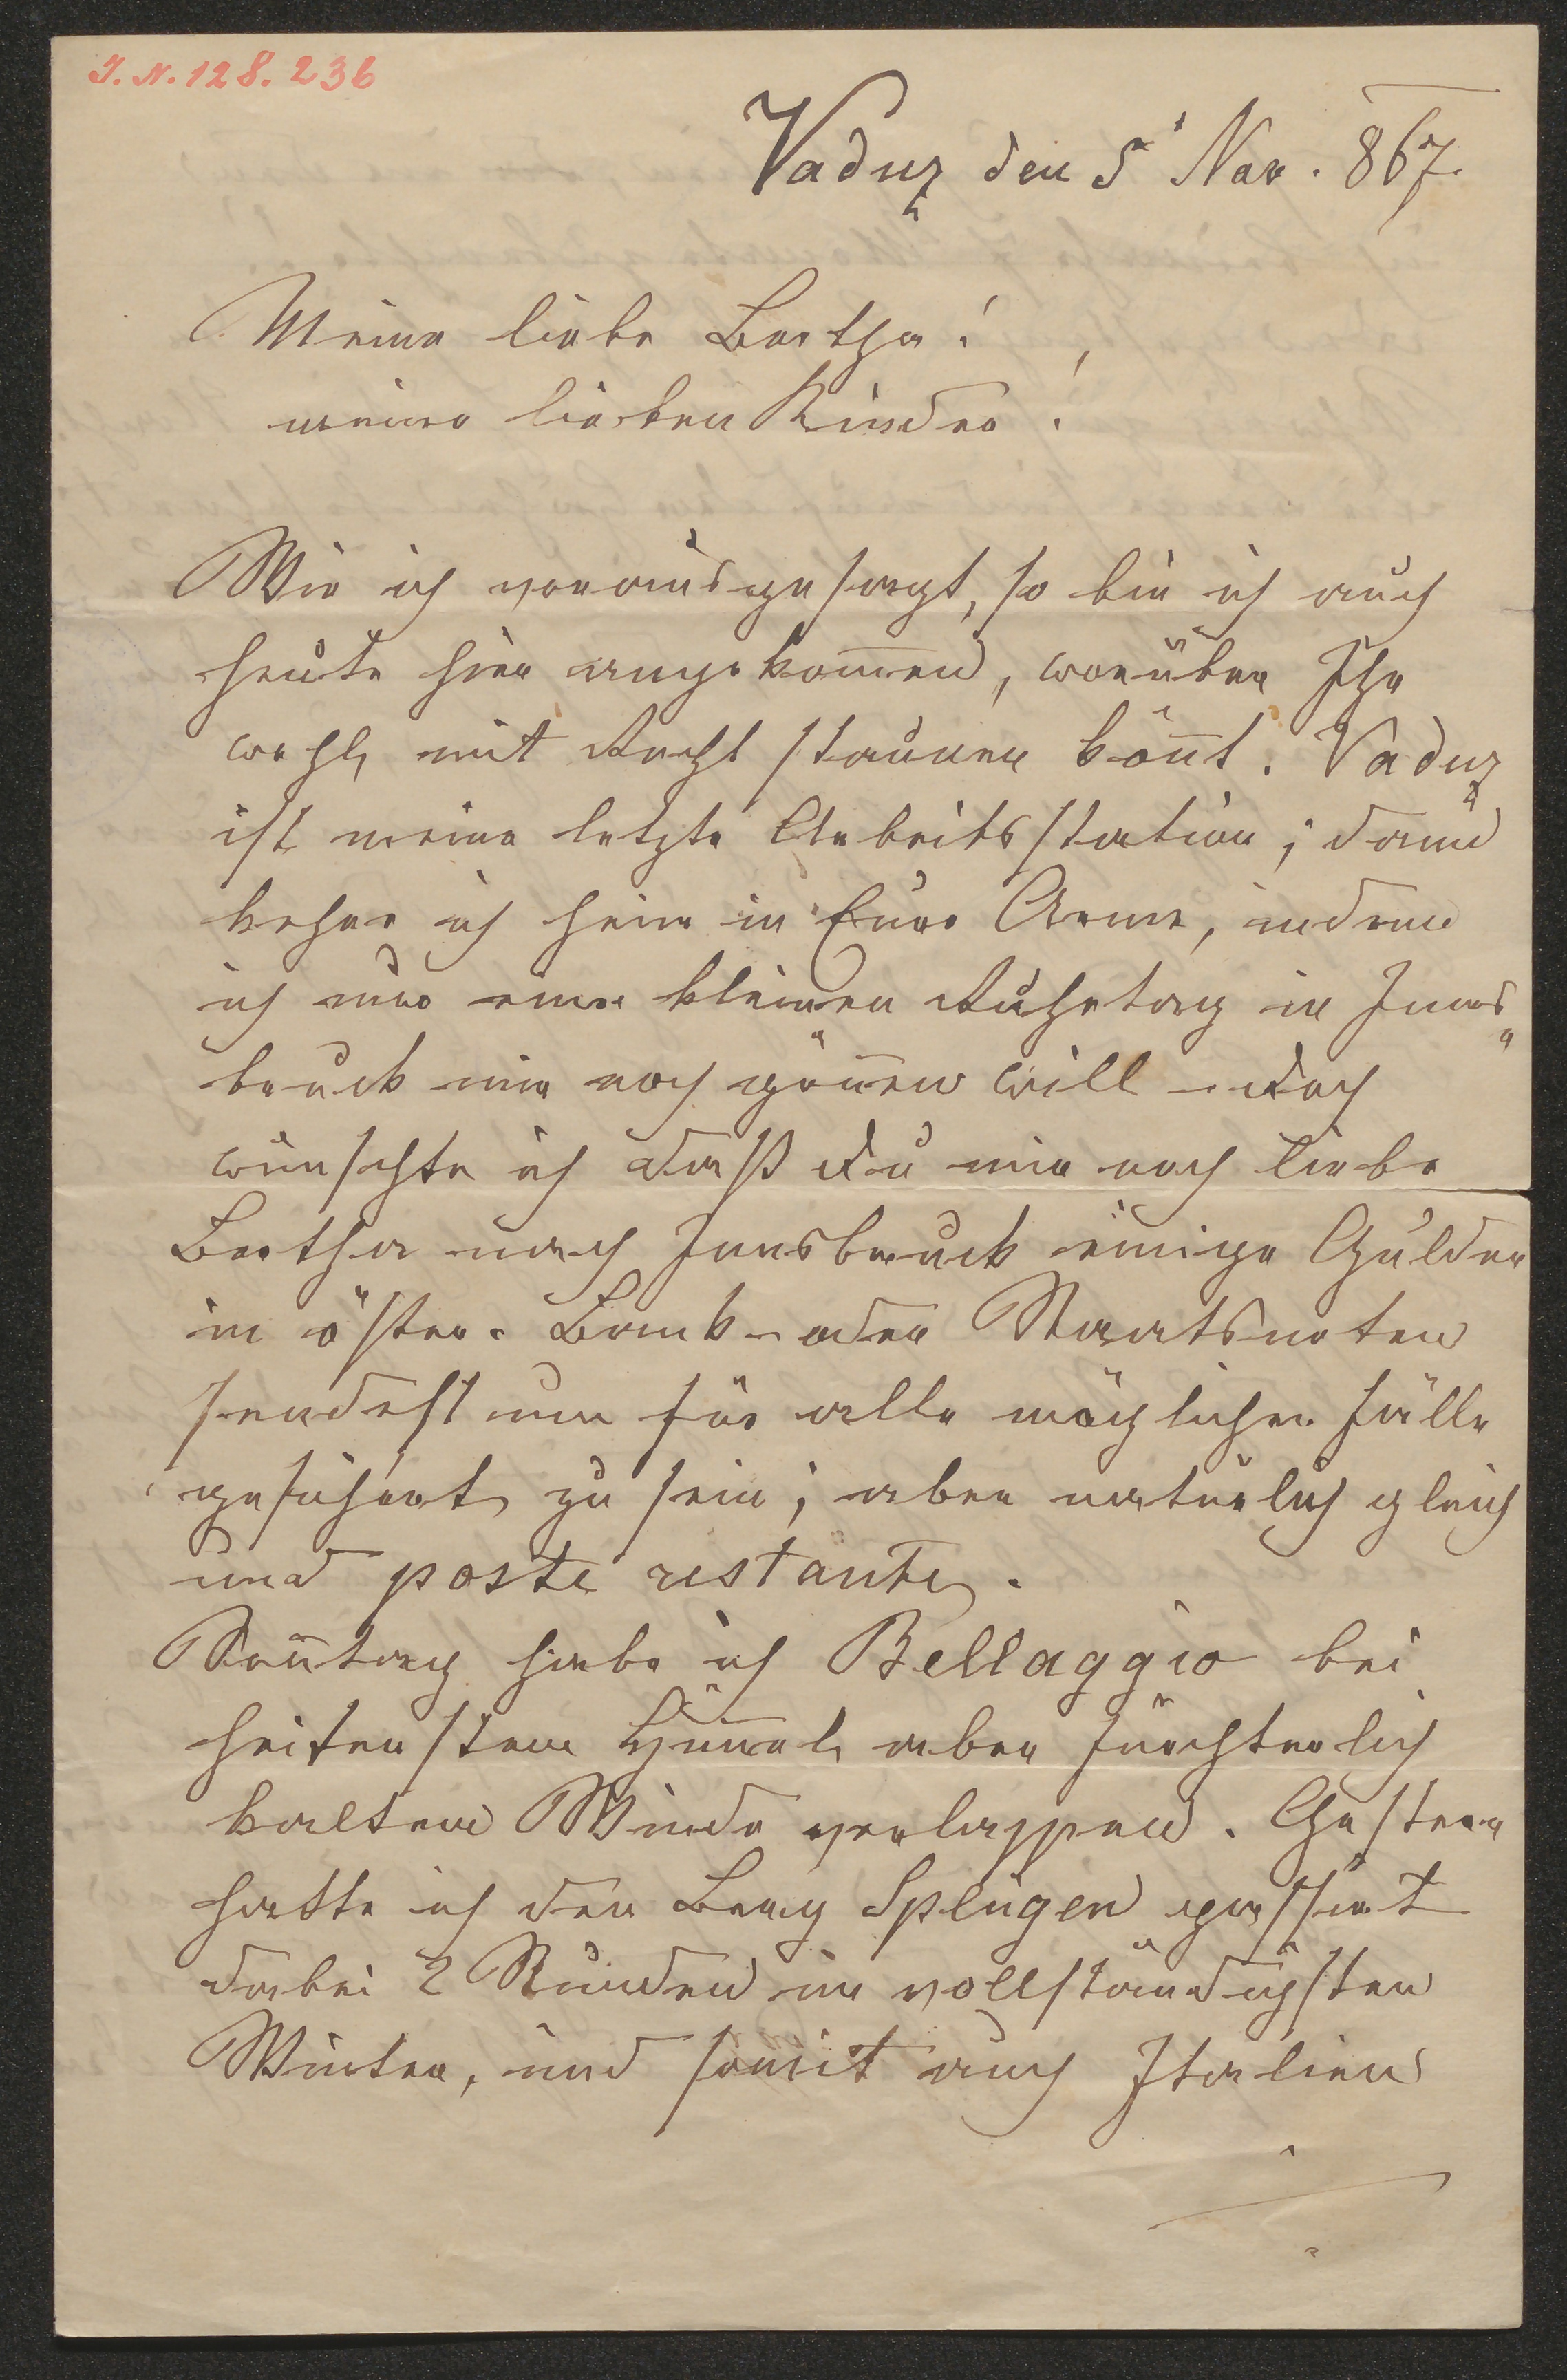 I. N. 128.236
Vaduz den 5t Nov. 867.
Meine liebe Bertha!
meine lieben Kinder!
Wie ich vorausgesagt, so bin ich auch
heute hier angekom̅en, worüber Ihr
wohl, mit Recht staunen kön̅t. Vaduz
ist meine letzte Arbeitsstation; dann
kehre ich heim in Eure Arme, indem
ich nur einen kleinen Ruhetag in Inns„
bruck mir noch gön̅en will – doch
wünschte ich daß du mir noch liebe
Bertha nach Innsbruck einige Gulden
in öster. Bank- oder Staatsnoten
sendest um für alle möglichen Fälle
gesichert zu sein; aber natürlich gleich
und poste restante.
Son̅tag habe ich Bellaggio bei
heiterstem Him̅el, aber fürchterlich
kaltem Winde verlassen. Gestern
hatte ich den Berg Splügen passirt
dabei 2 Stunden im vollständigsten
Winter, und somit auch Italien